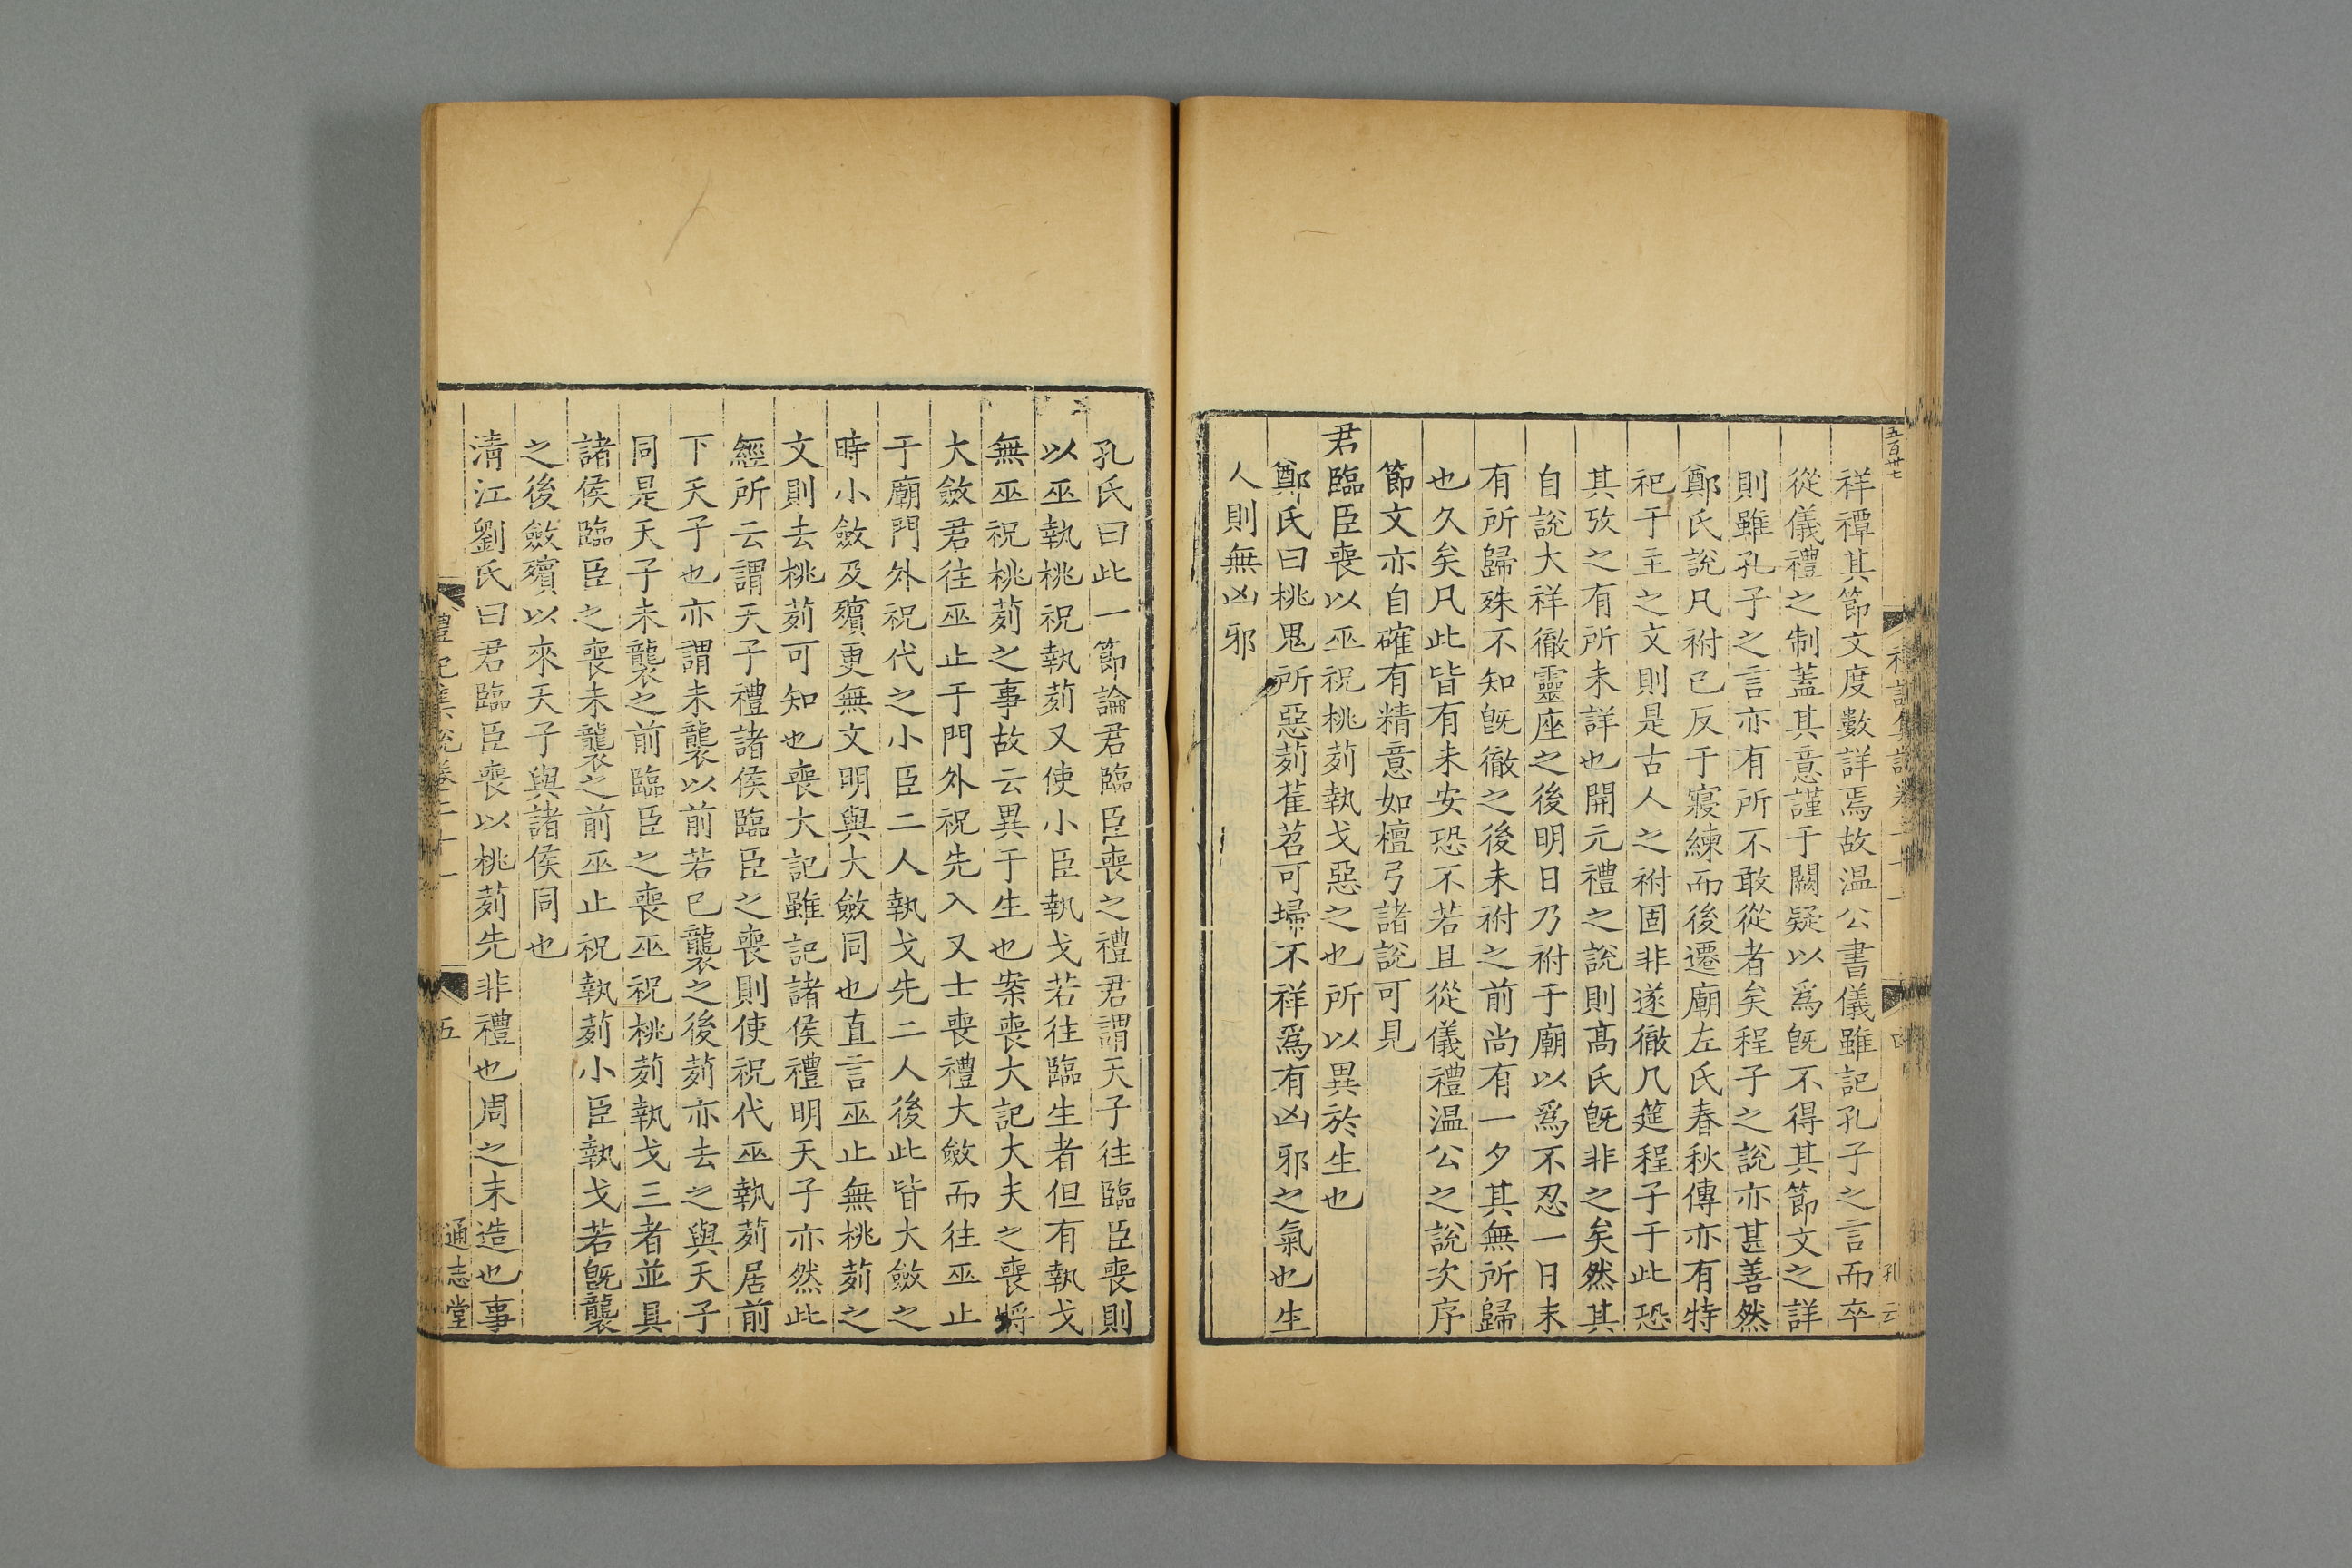 五百卅七
祥禫其節文度數詳焉故温公書儀雖記孔子之言而卒
從儀禮之制蓋其意謹于闕疑以爲旣不得其節文之詳
則雖孔子之言亦有所不敢從者矣程子之說亦甚善然
鄭氏說凡祔已反于寢練而後遷廟左氏春秋傳亦有特
祀于主之文則是古人之祔固非遂徹几筵程子于此恐
其攷之有所未詳也開元禮之說則髙氏旣非之矣然其
自說大祥徹靈座之後明日乃祔于廟以爲不忍一日末
有所歸殊不知旣徹之後未祔之前尚有一夕其無所歸
也久矣凡此皆有未安恐不若且從儀禮温公之說次序
節文亦自確有精意如檀弓諸說可見
君臨臣喪以巫祝桃茢執戈惡之也所以異於生也
鄭氏曰桃鬼所惡茢萑苕可埽不祥爲有凶邪之氣也生
人則無凶邪
孔氏曰此一節論君臨臣喪之禮君謂天子往臨臣喪則
以巫執桃祝執茢又使小臣執戈若往臨生者但有執戈
無巫祝桃茢之事故云異于生也案喪大記大夫之喪將
大斂君往巫止于門外祝先入又士喪禮大斂而往巫止
于廟門外祝代之小臣二人執戈先二人後此皆大斂之
時小斂及殯更無文明與大斂同也直言巫止無桃茢之
文則去桃茢可知也喪大記雖記諸侯禮明天子亦然此
經所云謂天子禮諸侯臨臣之喪則使祝代巫執茢居前
下天子也亦謂未襲以前若已襲之後茢亦去之與天子
同是天子未襲之前臨臣之喪巫祝桃茢執戈三者並具
諸侯臨臣之喪未襲之前巫止祝執茢小臣執戈若旣襲
之後斂殯以來天子與諸侯同也
清江劉氏曰君臨臣喪以桃茢先非禮也周之末造也事
禮記集說卷二十一 五 通志堂